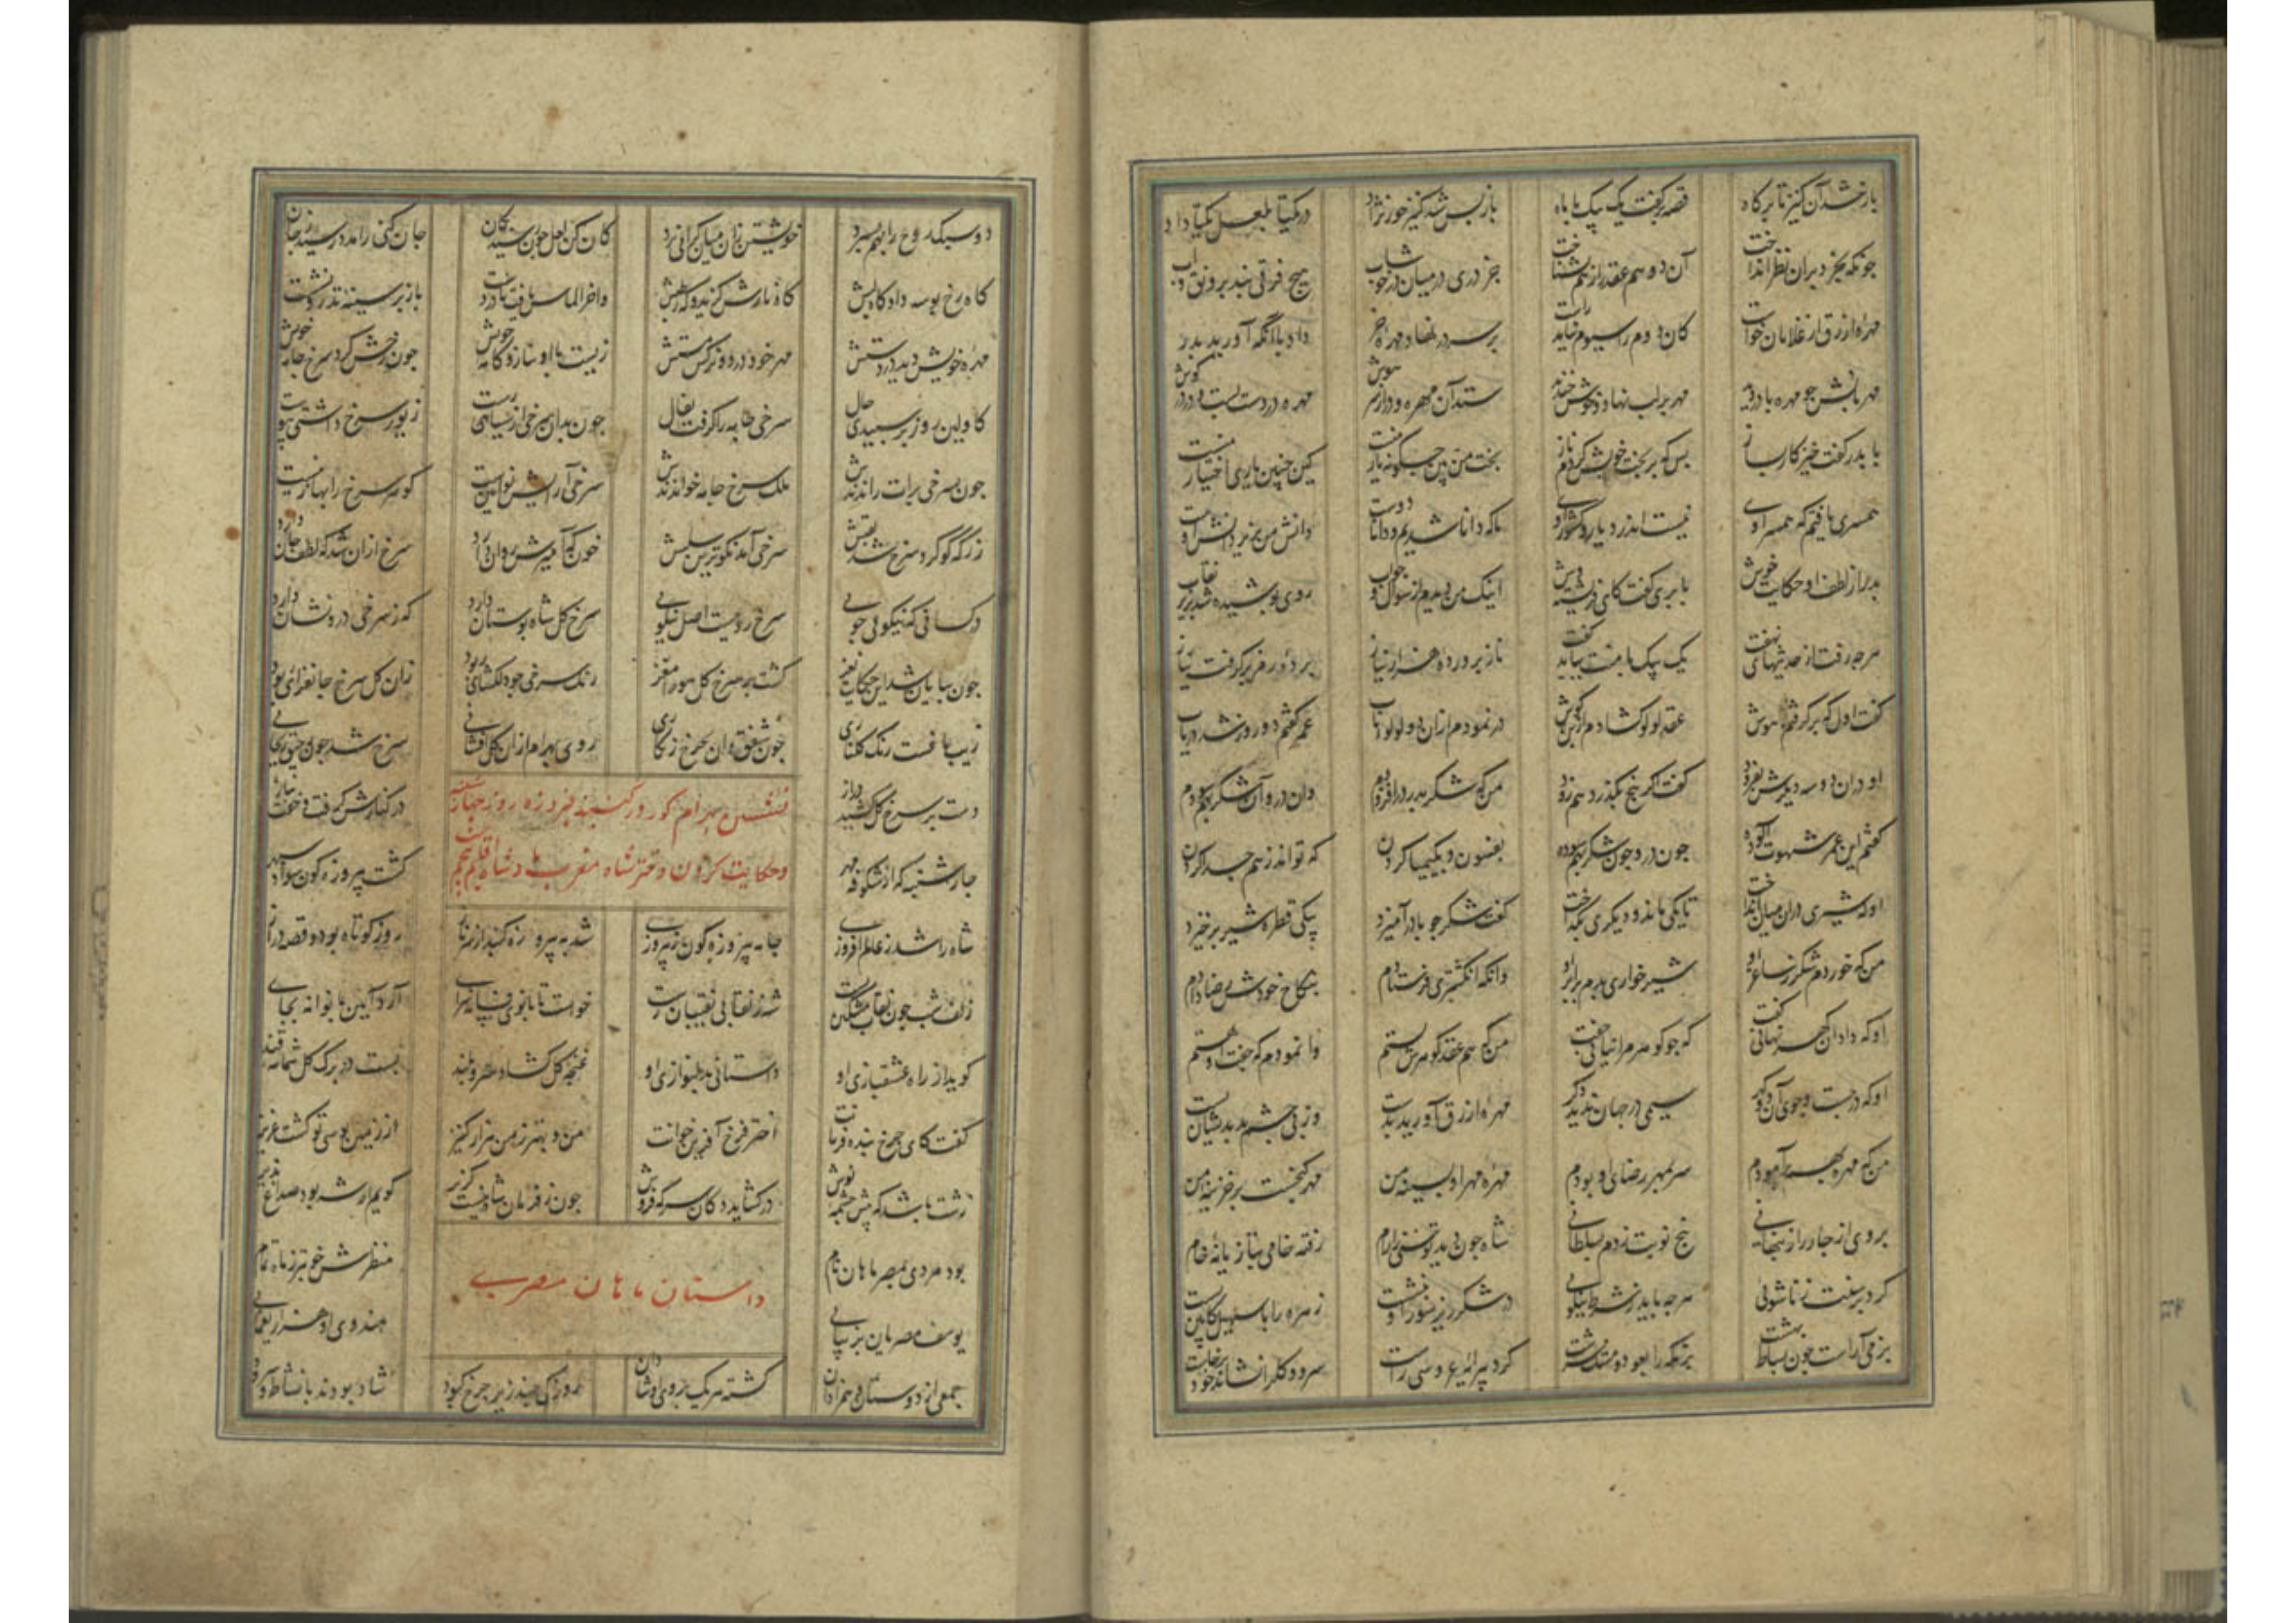 جونکه بخرد در آن نظر انداخت آن دو هم عقد را ز هم نشناخت جز دری در میان در خوشاب هیچ فرقی نبد برونق و آب
مهره ازرق از غلامان خواست کان دوم را سیوم نیاید راست بر سر در نهاد مهره داد با آنکه آورید
مهر بر لب نهاد و خوش خندید ستد آن مهره
با بدر گفت خیز کار بساز بس که بر بخت خویش کردم ناز بخت من بین جکونه یار منست کین جنین یاری اختیار منست
همسری یافتم که همسر اوی نیست اندر دیار و کشور اوی ما که دانا شدیم و دانا دوست دانش من بزیر دانش اوست
بدر از لطف او حکایت خویش با بری گفت کای فرشته اینک من دیدم از سؤال و جواب روی بوشیده شد بزیر نقاب
هرجه رفت از حدیثهای نهفت یک بیک با منت بباید گفت ناز برورده هزار نیاز برده رمز برگرفت
گفت اول که برگرفتم هوش عقد لولو گشادم از بن گوش در نمودم ازان دو لولو تاب عمر گفتم دو روز شد دریاب
او دران دو سه دیگرش بفزود گفت اگر بنج بگذرد هم زود من که شکر بدر درافزودم وان در و آن شکر بهم سودم
گفتم این عمر شهوت آلوده جون در و جون شکر بهم سوده بفسون و بکیمیا کردن که تواند ز هم جدا کردن
او که شیری دران میان انداخت تا یکی ماند و دیگری بگداخت گفت شکر جو با در آمیزد بیکی قطره شیر برخیزد
من که خوردم شکر ز ساغر او شیرخواری بدم برابر او وانکه انگشتری فرستادم بنکاح خودش رضا دادم
او که داد آن گهر نهانی گفت که جو گوهر مرا نیابی جفت من که هم عقد گوهرش بستم وا نمودم که جفت او هستم
او که در جست و جوی آن دو گهر سیمی در جهان ندید دگر مهره ازرق آورید بدست وز بی جشم بد بریشان بست
من که مهره بخود برآمودم سر بمهر رضای او بودم مهره مهر او بسینه من مهر گنجست بر خزینه من
بروی از جار راز بنهانی بنج نوبت زدم بسلطانی شاه جون دید توسنی را رام رفته خامی بتازیانه خام
کرد بر سنت زناشوئی هرجه باید ز شرط نیکوئی در شکر ریز سور او بنشست زهره را با سهیل کابین بست
بزمی آراست جون بساط بهشت بزمگه را بعود و مشک سرشت کرد بیرایه عروسی راست سرو و گل را نشاند و خود برخاست
دو سبک روح را بهم بسبرد خویشتن زان میان گرانی برد کان کن لعل جون رسید بکان جان کنی را مدد رسید ز جان
گاه رخ بوسه داد گاه لبش گاه نارش گزید و گه رطبش واخر الماس یافت بر در دست باز بر سینه تذرو نشست
مهره خویش دید در دستش مهر خود در دو نرگس مستش زیست با او بناز و کامه خویش جون رخش کرد سرخ جامه خویش
کاولین روز بر سبیدی حال سرخی جامه را گرفت بفال جون بدان سرخی از سیاهی رست زیور سرخ داشتی بیوست
جون بسرخی برات راندندش ملک سرخ جامه خواندندش سرخی آرایشی نو آیین است گوهر سرخ را بها زینست
زر که گوگرد سرخ شد لقبش سرخی آمد نکوترین سلبش خون که آمیزش روان دارد سرخ ازان شد که لطف جان دارد
در کسانی که نیکوئی جوئی سرخ روئیست اصل نیکوئی سرخ گل شاه بوستان که ز سرخی درو نشان
جون ببایان شد این حکایت نغز گشت بر سرخ گل هوا را مغز رنگ سرخی جو دلگشای بود زان گل سرخ جانفزای بود
زیب یافت رنگ گلناری جون شفق وان جرخ زنگاری روی بهرام ازان گل افشانی سرخ شد جون رحیق ریحانی
دست بر سرخ گل کشید دراز در کنارش گرفت و خفت بناز
نشستن بهرام کور در کنبد فیروزه روز جهارشنبه
وحکایت کردن دختر شاه مغرب بادشاه اقلیم بنجم
جارشنبه که از شکوفه مهر گشت بیروزه گون سواد سبهر
شاه را شد ز عالم افروزی جامه بیروزه گون ز بیروزی شد به بیروزه گنبد از سر ناز روز کوتاه بود و قصه دراز
زلف شب جون نقاب مشکین بست شه ز نقابی نقیبان رست خواست تا بانوی فسانه سرای آرد آیین بانوانه بجای
گوید از راه عشقبازی او داستانی بدلنوازی او غنجه گل گشاد سرو بلند بست در برگ گل شمامه قند
گفت کای جرخ بنده فرمانت اختر فرخ آفرین خوانت من و بهتر ز من هزار کنیز از زمین بوسی تو گشت عزیز
زشت باشد که بیش جشمه نوش درگشاید دکان سرکه فروش جون ز فرمان شاه نیست گزیر گویم ار شه بود صداع بذیر
داستان ماهان مصری
بود مردی بمصر ماهان نام منظرش خوبتر ز ماه تمام
یوسف مصریان بزیبائی هندوی او هزار یغمائی
جمعی از دوستان و همزادان گشته هر یک بروی او شادان روزکی جند زیر جرخ کبود شاد بودند با نشاط و